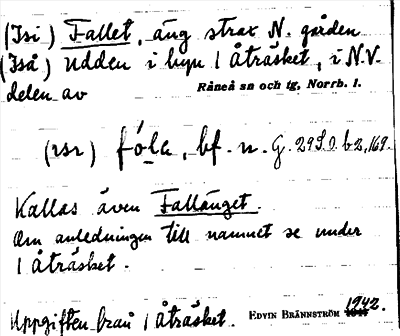 (Isi) Fallet, äng strax N. gården
(Iså) Udden i byn 1 Åträsket, i N.V.
delen av Råneå sn och tg, Norrb. l.
(ısı) fóla, bf. n. G. 29
Kallas även Fallänget.
Om anledningen till namnet se under
1 Åträsket.
Uppgiften från 1 Åträsket. EDVIN BRÄNNSTRÖM 1942.